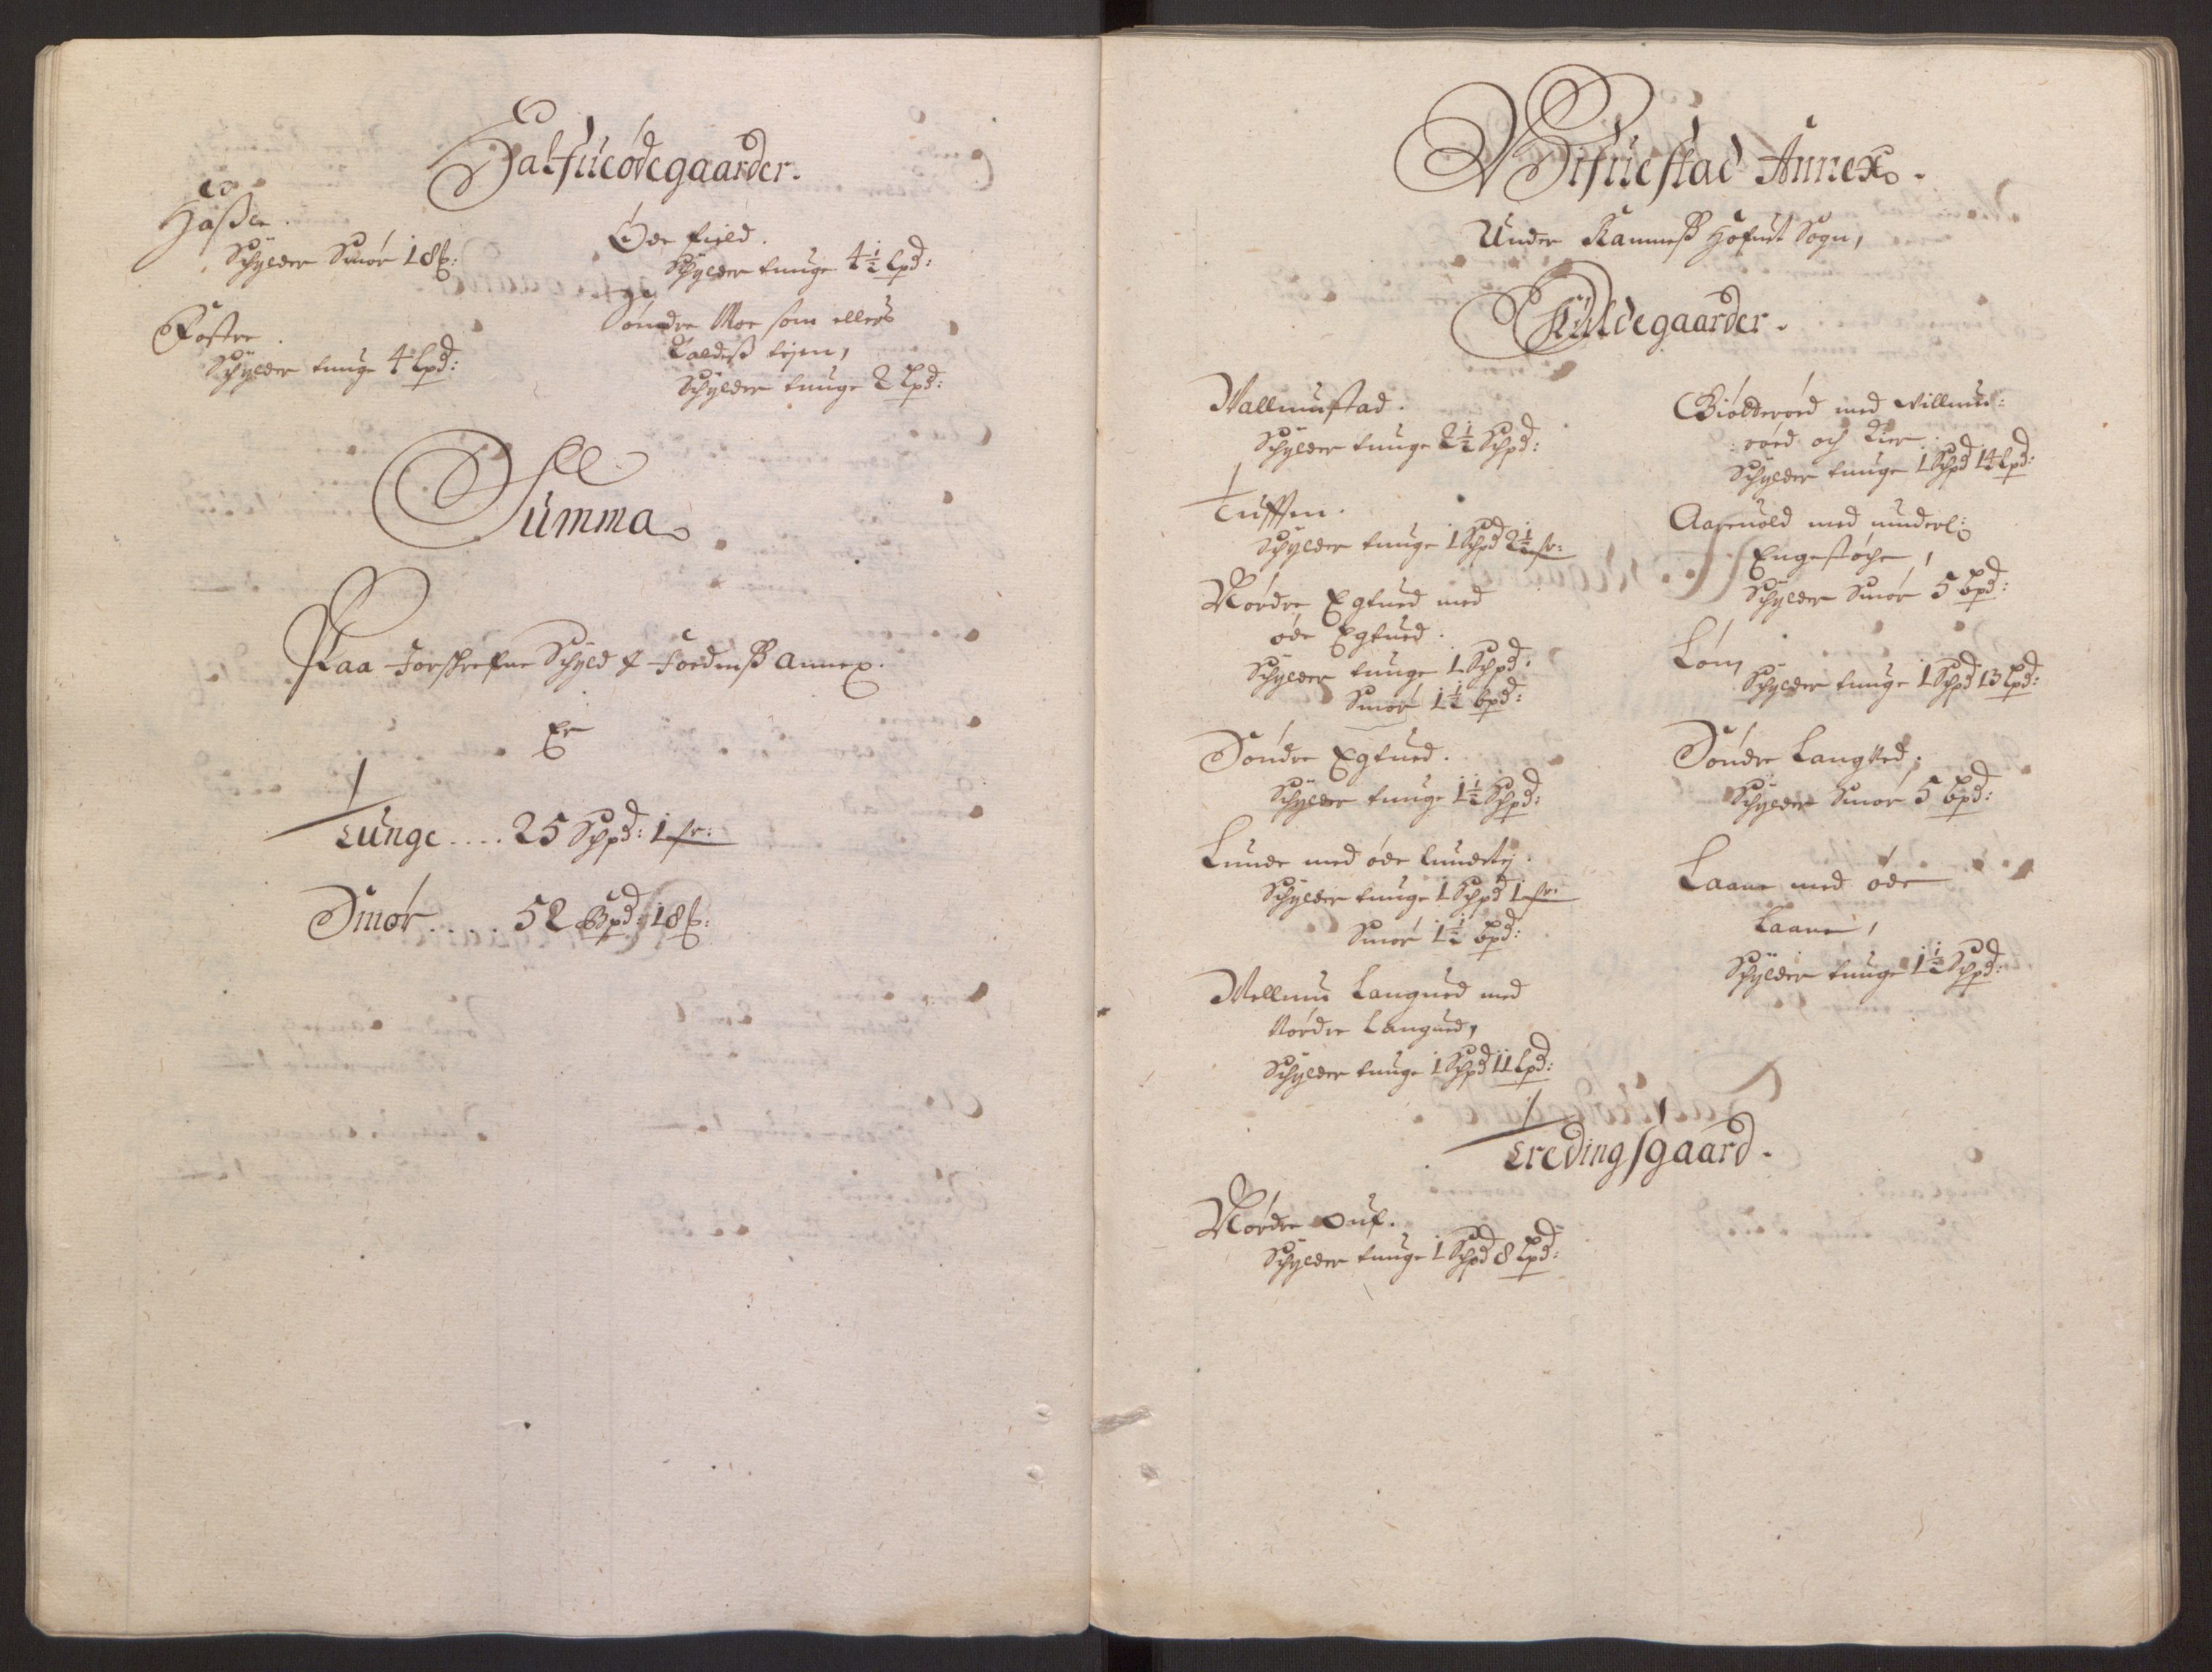 Halfueødegaarder.
Haßle.
Schylder Smør 18 ℔:
Fostre.
Schylder tunge 4 Lpd:
Øde field.
Schylder tunge 4½ Lpd:
Søndre Moe som ellers
Kaldeß lien,
Schylder tunge 2 Lpd:
Summa
Paa forschrefne Schyld i annex.
Er
Tunge .... 25 Schpd: 1 fr:
Smør ..... 52 Bpd: 18 ℔:
Wifuestad Annex.
Under Ramneß Hofuet Sogn,
Fuldegaarder.
Wallmustad.
Schylder tunge 2½ Schpd:
Tuffen.
Schylder tunge 1 Schpd 2½ fr:
Nordre Egtued med
øde Egtued.
Schylder tunge 1 Schpd:
Smør 1½ Bpd:
Søndre Egtued.
Schylder tunge 1½ Schpd:
Lunde med øde lundetej.
Schylder tunge 1 Schpd 1 fr:
Smør 1½ Bpd:
Mellum Langued med
Nordre Langued,
Schylder tunge 1 Schpd 11 Lpd:
Biølderød med Willum:
røed och Kier.
Schylder tunge 1 Schpd 14 Lpd:
Aareuold med underl:
Engestøche,
Schylder Smør 5 Bpd:
Løm
Schylder tunge 1 Schpd 13 Lpd:
Søndre Langued.
Schylder Smør 5 Bpd:
Laane med øde
Laane,
Schylder tunge 1½ Schpd:
Tredingsgaard.
Nordre
Schylder tunge 1 Schpd 8 Lpd: